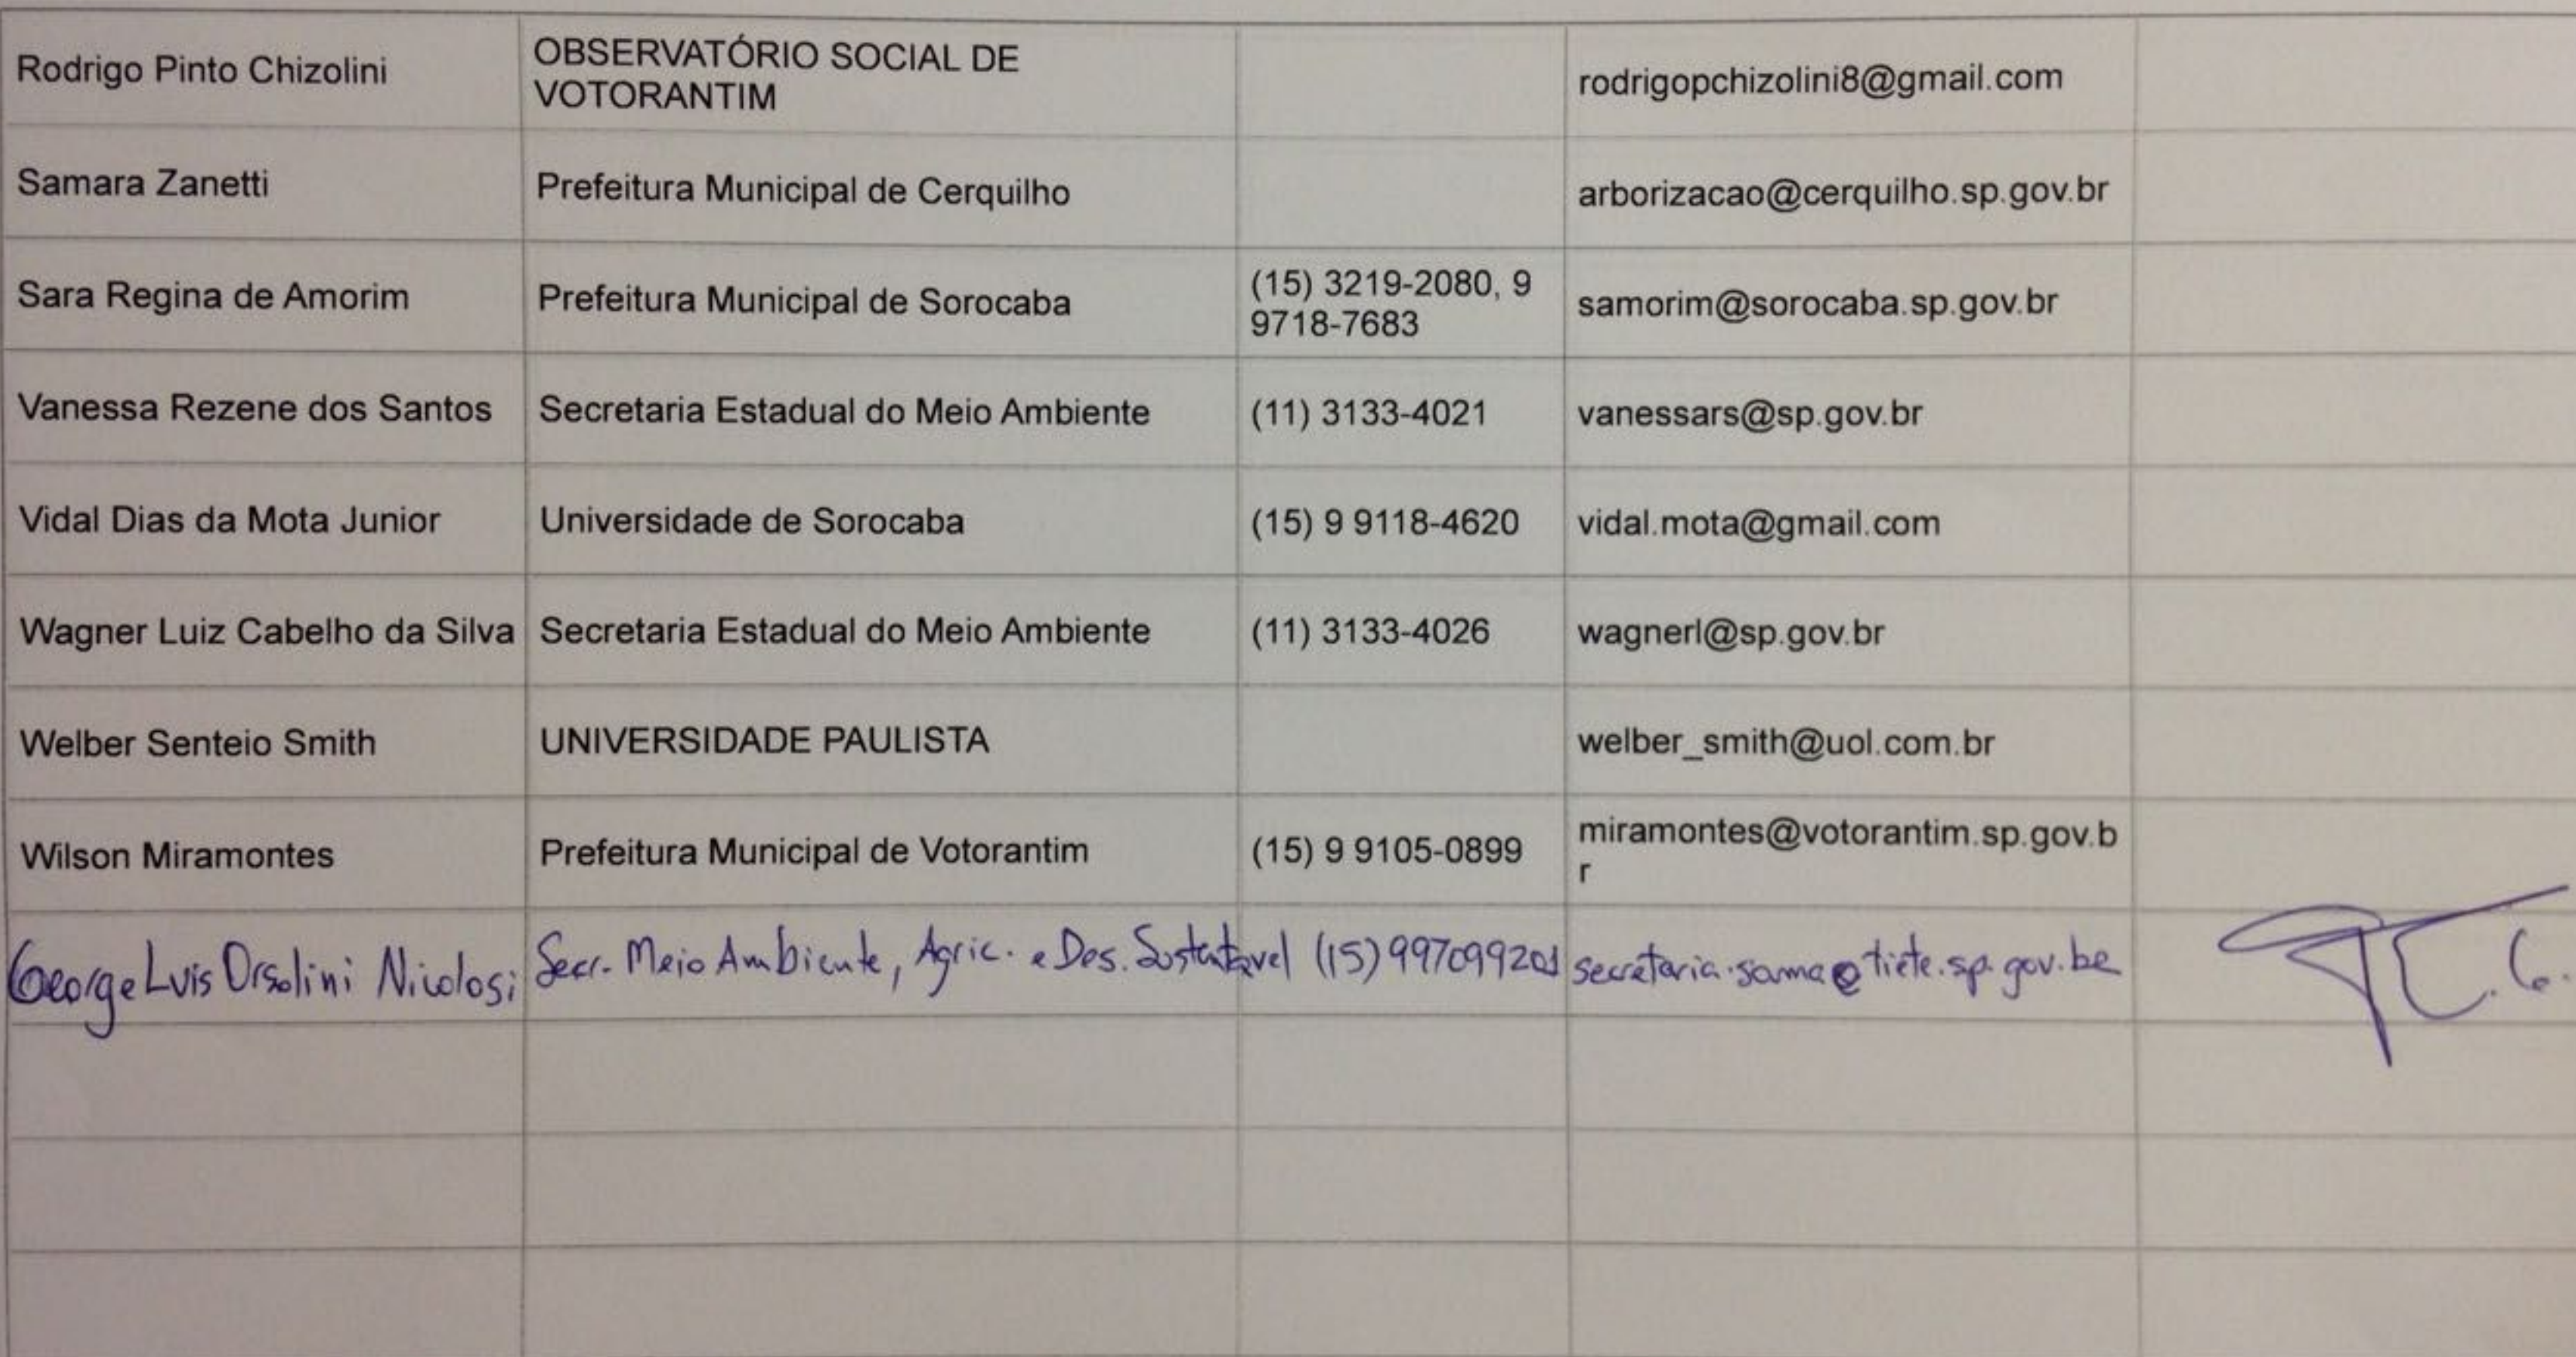 Rodrigo Pinto Chizolini
OBSERVATÓRIO SOCIAL DE
VOTORANTIM
rodrigopchizolini8@gmail.com
Samara Zanetti
Prefeitura Municipal de Cerquilho
arborizacao@cerquilho.sp.gov.br
Sara Regina de Amorim
Prefeitura Municipal de Sorocaba
(15) 3219-2080, 9
9718-7683
samorim@sorocaba.sp.gov.br
Vanessa Rezene dos Santos
Secretaria Estadual do Meio Ambiente
(11) 3133-4021
vanessars@sp.gov.br
Vidal Dias da Mota Junior
Universidade de Sorocaba
(15) 9 9118-4620
vidal.mota@gmail.com
Wagner Luiz Cabelho da Silva
Secretaria Estadual do Meio Ambiente
(11) 3133-4026
wagnerl@sp.gov.br
Welber Senteio Smith
UNIVERSIDADE PAULISTA
welber_smith@uol.com.br
Wilson Miramontes
Prefeitura Municipal de Votorantim
(15) 9 9105-0899
miramontes@votorantim.sp.gov.b
r
George Luis Orsolini Nicolosi
Secr. Meio Ambiente, Agric. e Des. Sustentavel
(15) 997099201